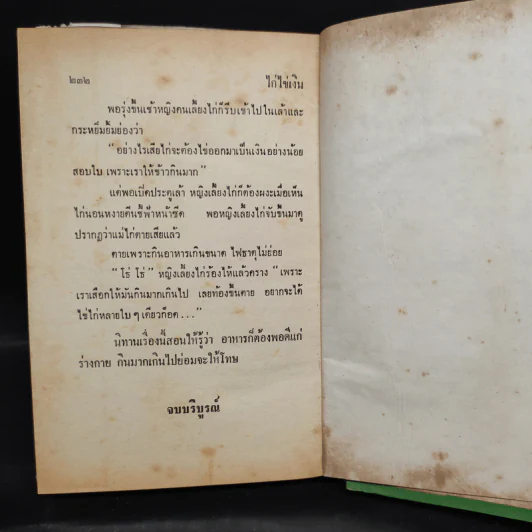 ๒๓๒ ไก่ไข่เงิน
พอรุ่งขึ้นเช้าหญิงคนเลี้ยงไก่ก็รีบเข้าไปในเล้าและ
กระหยิ่มยิ้มย่องว่า
"อย่างไรเสียไก่จะต้องไข่ออกมาเป็นเงินอย่างน้อย
สองใบ เพราะเราให้ข้าวกินมาก"
แต่พอเปิดประตูเล้า หญิงเลี้ยงไก่ก็ต้องผงะเมื่อเห็น
ไก่นอนหงายตีนชี้ฟ้าหน้าซีด พอหญิงเลี้ยงไก่จับขึ้นมาดู
ปรากฏว่าแม่ไก่ตายเสียแล้ว
ตายเพราะกินอาหารเกินขนาด ไฟธาตุไม่ย่อย
"โธ่ โธ่" หญิงเลี้ยงไก่ร้องไห้แล้วคราง "เพราะ
เราเสือกให้มันกินมากเกินไป เลยท้องขึ้นตาย อยากจะได้
ไข่ไก่หลายใบ ๆ เดียวก็อด..."
นิทานเรื่องนี้สอนให้รู้ว่า อาหารก็ต้องพอดีแก่
ร่างกาย กินมากเกินไปย่อมจะให้โทษ
จบบริบูรณ์